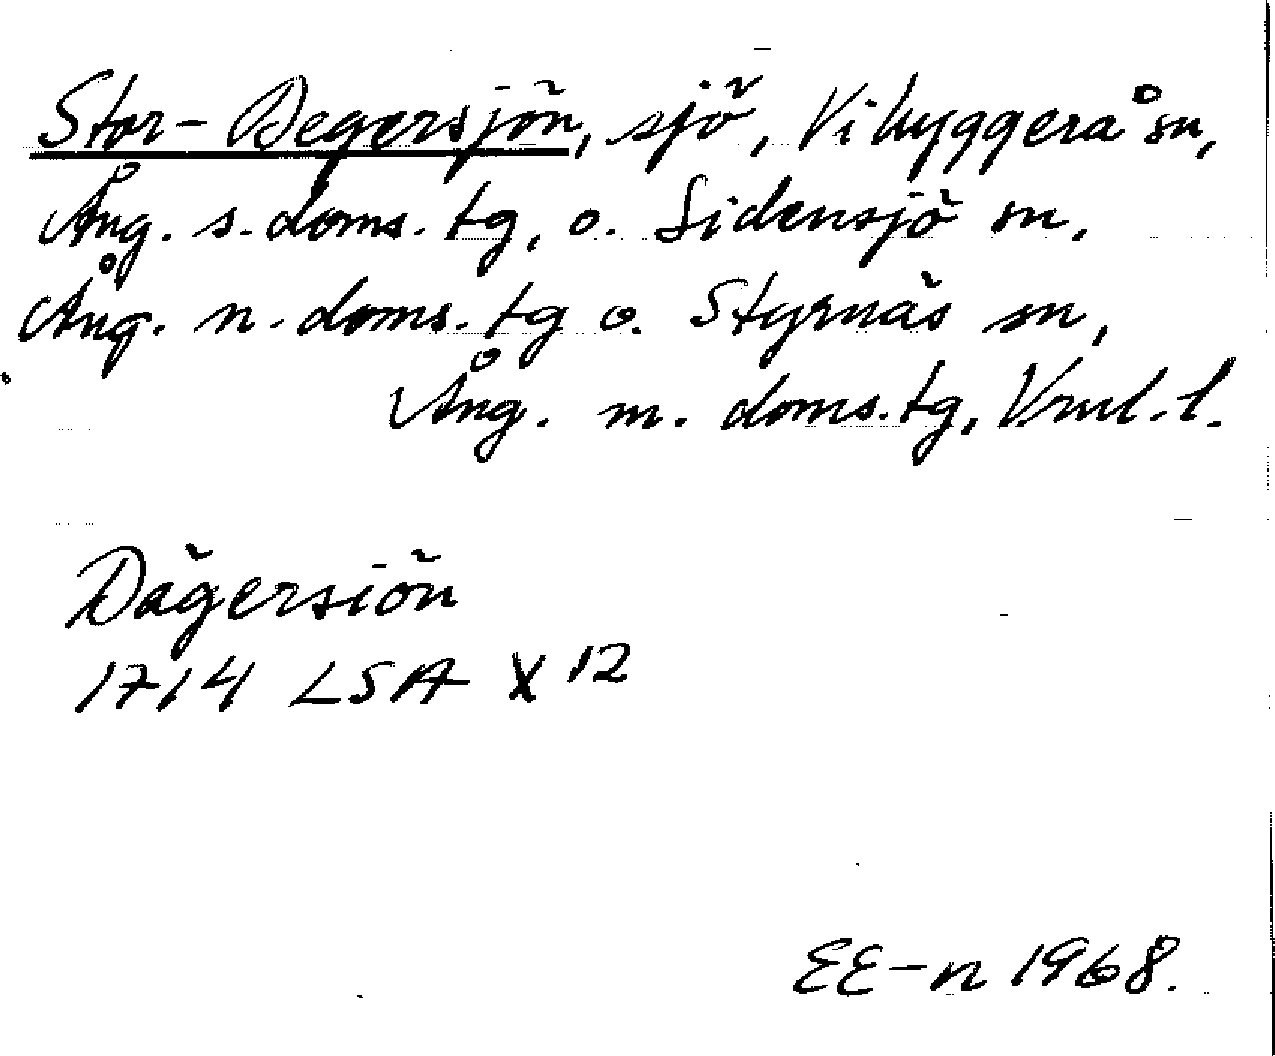 Stor-Degersjön, sjö, Vibyggerå sn,
Ång. s. doms. tg, o. Sidensjö sn,
Ång. n. doms. tg o. Styrnäs sn,
Ång. m. doms. tg, Vrnl. l.
Dägersiön
1714 LSA X 12
EE-n 1968.